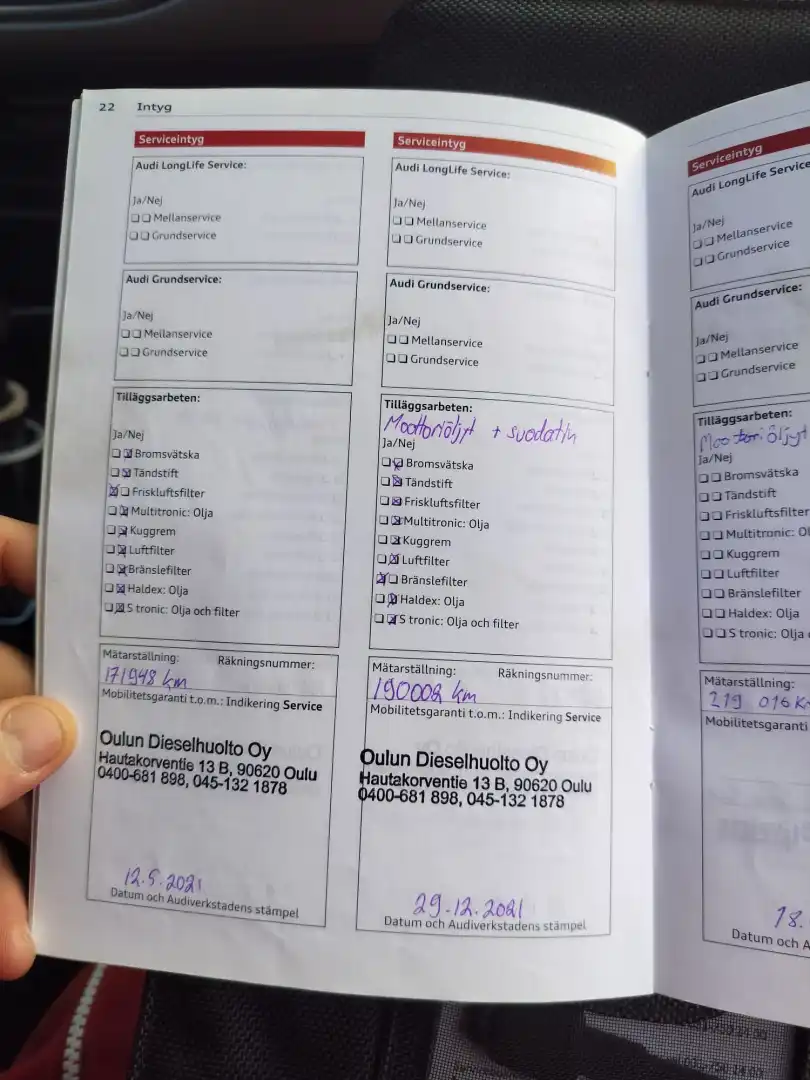 22 Intyg
Serviceintyg
Audi LongLife Service:
Ja/Nej
Mellanservice
Grundservice
Audi Grundservice:
Ja/Nej
Mellanservice
Grundservice
Tilläggsarbeten:
Ja/Nej
Bromsvätska
Tändstift
Friskluftsfilter
Multitronic: Olja
Kuggrem
Luftfilter
Bränslefilter
Haldex: Olja
S tronic: Olja och filter
Mätarställning: Räkningsnummer:
171948 km
Mobilitetsgaranti t.o.m.: Indikering Service
Oulun Dieselhuolto Oy
Hautakorventie 13 B, 90620 Oulu
0400-681 898, 045-132 1878
12.5.2021
Datum och Audiverkstadens stämpel
Serviceintyg
Audi LongLife Service:
Ja/Nej
Mellanservice
Grundservice
Audi Grundservice:
Ja/Nej
Mellanservice
Grundservice
Tilläggsarbeten:
Moottoriöljyt + suodatin
Ja/Nej
Bromsvätska
Tändstift
Friskluftsfilter
Multitronic: Olja
Kuggrem
Luftfilter
Bränslefilter
Haldex: Olja
S tronic: Olja och filter
Mätarställning: Räkningsnummer:
190002 km
Mobilitetsgaranti t.o.m.: Indikering Service
Oulun Dieselhuolto Oy
Hautakorventie 13 B, 90620 Oulu
0400-681 898, 045-132 1878
29.12.2021
Datum och Audiverkstadens stämpel
Serviceintyg
Audi LongLife Service
Ja/Nej
Mellanservice
Grundservice
Audi Grundservice:
Ja/Nej
Mellanservice
Grundservice
Tilläggsarbeten:
Moottoriöljyt
Ja/Nej
Bromsvätska
Tändstift
Friskluftsfilter
Multitronic: Ol
Kuggrem
Luftfilter
Bränslefilter
Haldex: Olja
S tronic: Olja
Mätarställning:
219 016 K
Mobilitetsgaranti
18.
Datum och A